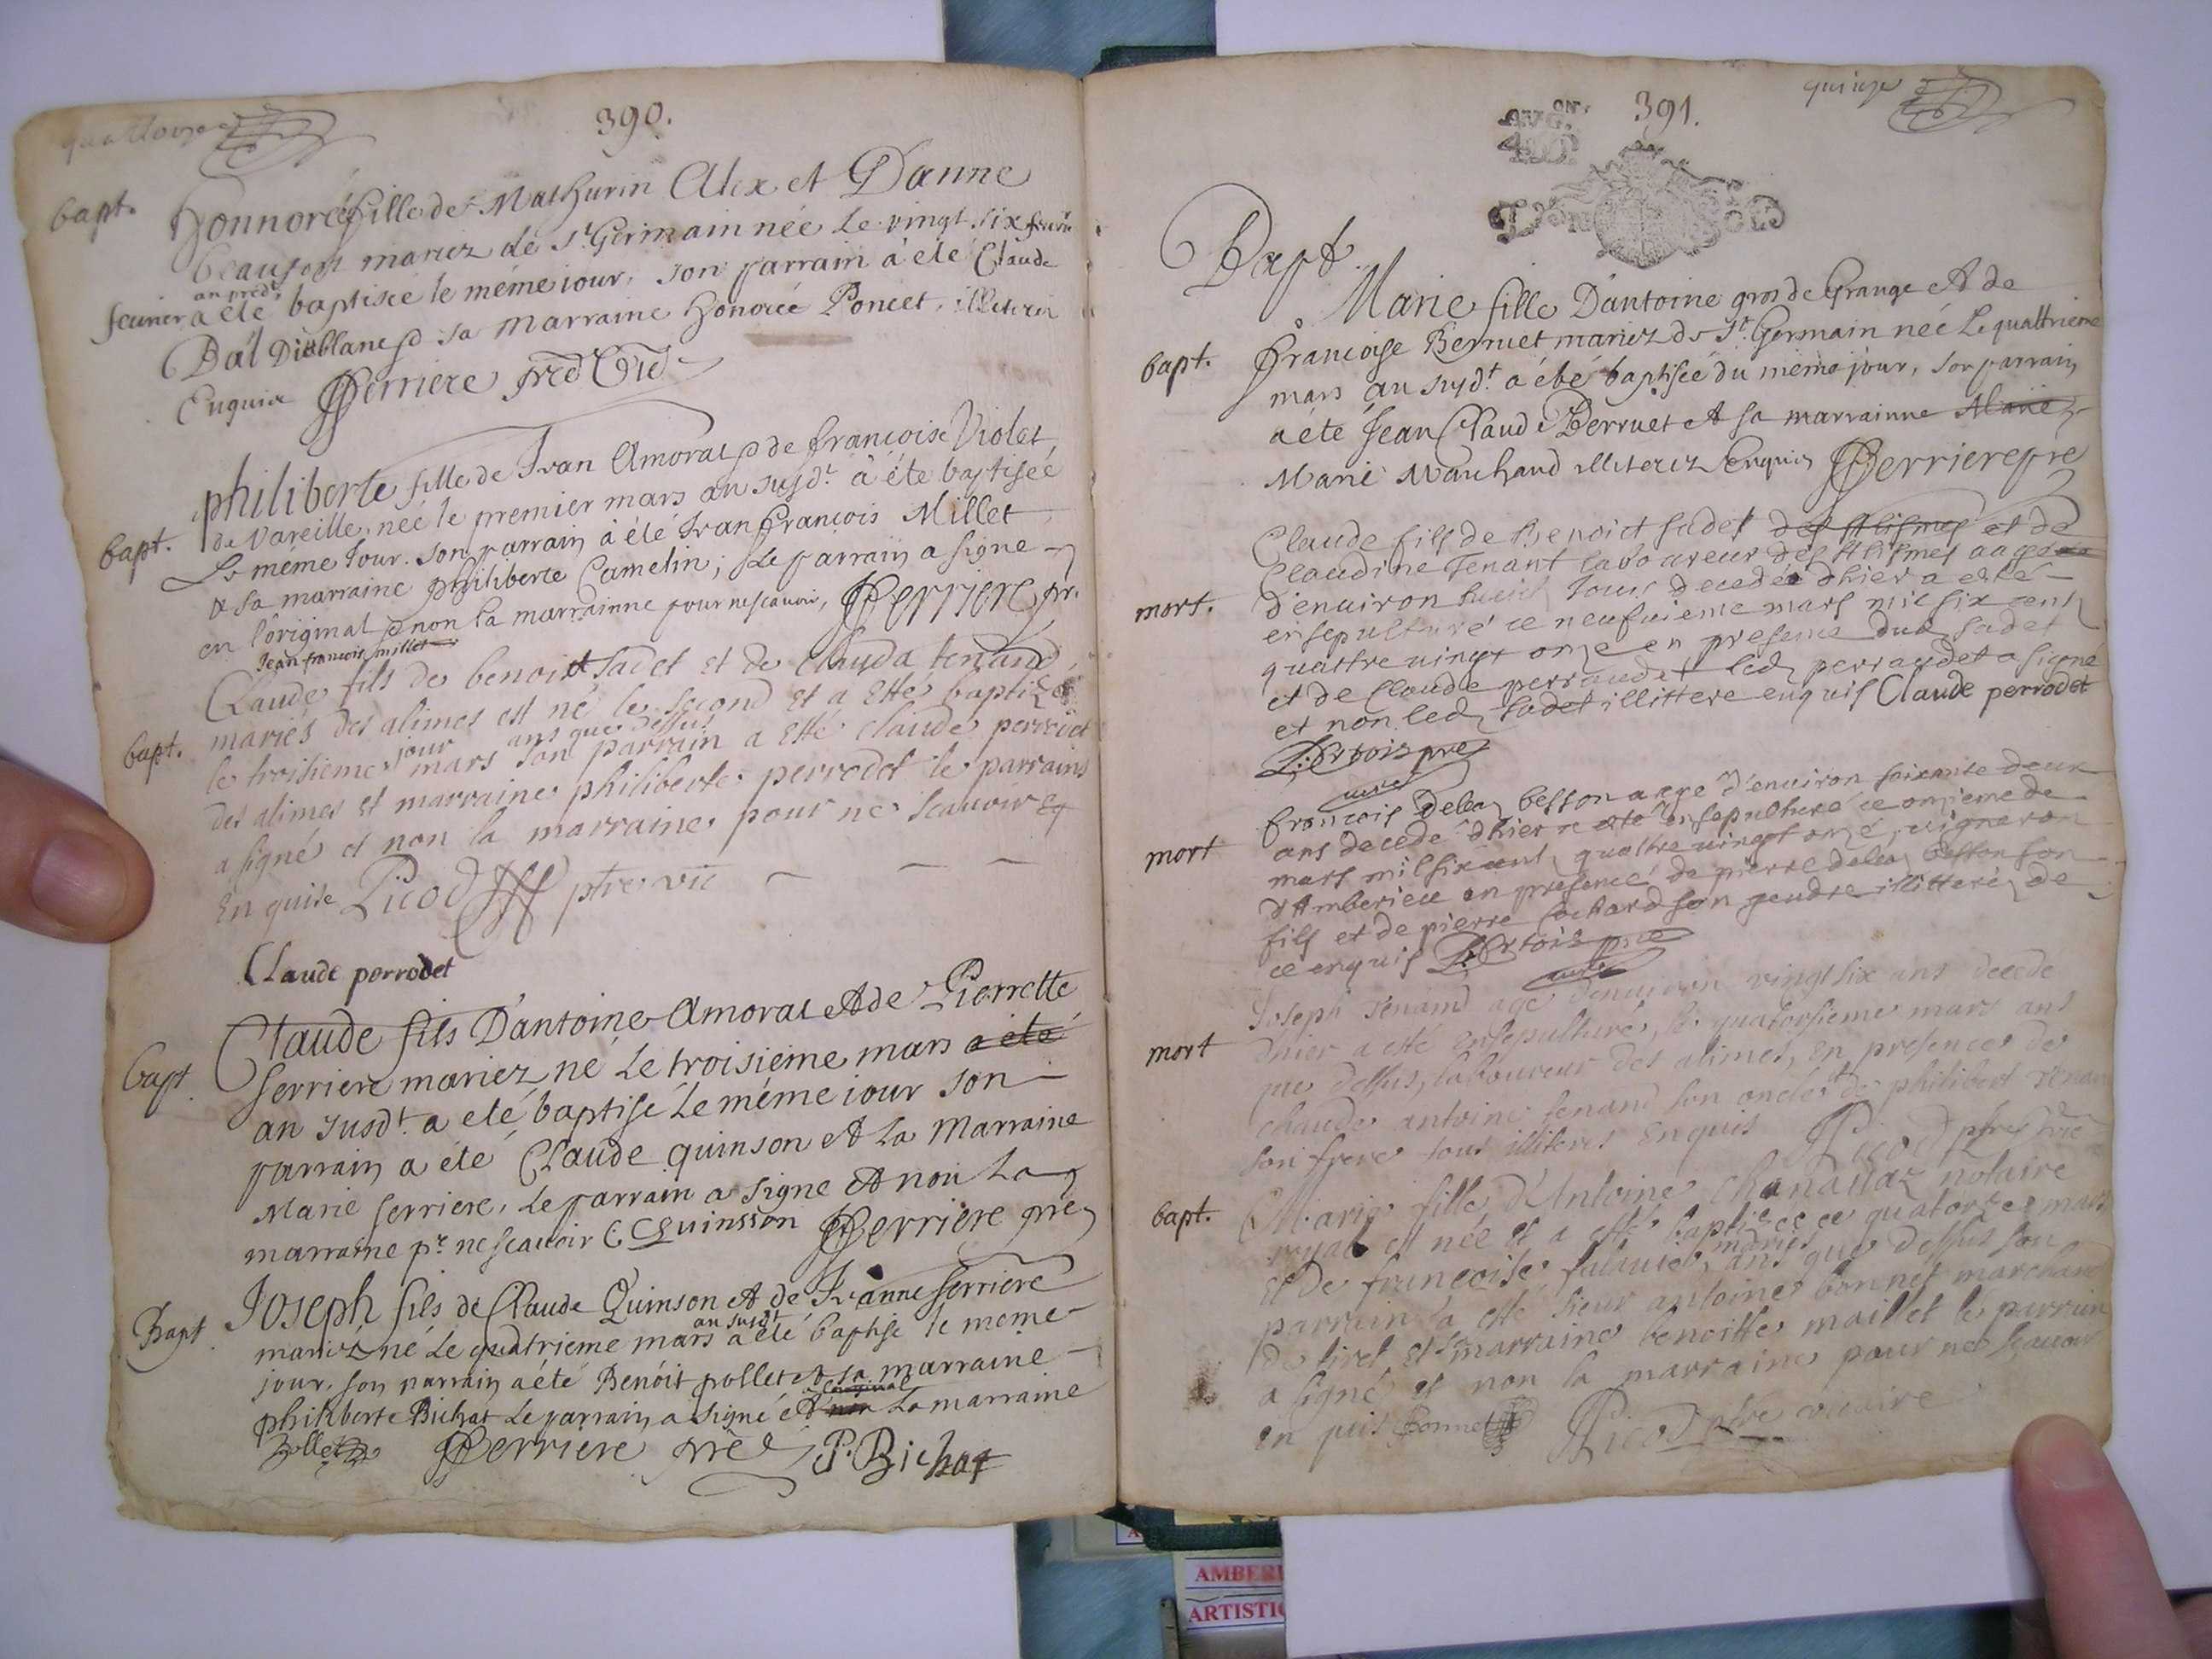 quattorze
390.
bapt.
honnoreé fille de Mathurin Alex et Danne
beaufort mariez de St Germain née le vingt six feuri
feurier a eté an predt baptiseé le méme iour, son parrain à eté Claude
sa Marraine honoreé Poncet, illiterez
Enquis fferriere
bapt.
philiberte fille de Ivan Amorat de francoise Violet
de Vareille, neé le premier mars an susdt. à éte baptiseé
Le méme iour. son parrain à été Ivan francois Millet
& sa marraine philiberte Camelin; Le parrain a signe
en l'original & non la marrainne pour ne scauoir, fferriere pr.
Jean francois millet
bapt.
Claude fils de benoit sadet et de Clauda tenand
mariés des alimes est né le second et a esté baptizé
le troisieme jour mars ans que dessus son parrain a esté claude perrodet
des alimes et marraine philiberte perrodet le parrains
a signé et non la marraine pour ne scauoir
Enquise Picod ptre vic
Claude perrodet
bapt.
Claude fils D'antoine Amorat et de Pierrette
ferriere mariez né Le troisiéme mars a eté
an susdt. a eté baptisé Le méme iour son
parrain a été Claude quinson et La Marraine
Marie ferriere, Le parrain a signe et non La
marraine pr. ne scauoir C Quinsson fferriere pre
Bapt.
Joseph fils de Claude Quinson et de Ivanne ferriere
mariéz né Le quatrieme mars an susdt a été baptise le meme
jour. son parrain a été Benóit pollet et sa marraine
philiberte Bichat Le parrain a signé et non La marraine
Pollet fferriere pre P. Bichat
quinze
391.
AVG.ON.
Bapt.
bapt.
Marie fille D'antoine gros de Grange et de
francoise Berruet mariez de St. Germain neé Le quattrieme
mars an susdt. a été baptiseé du méme jour, son parrain
a éte Jean Claude Berruet et sa marrainne Marie
Marie Marchand illiterez Enquis fferriere pre
mort.
Claude fils de Benoict sadet des Alismes et de
Claudine Tenant laboureur des Alismes aagé
d'enuiron huict Jours decedé d'hier a esté
ensepulturé ce neufuieme mars mil six cent
quattre vingt onze en presence dud sadet
et de Claude perraudet led perraudet a signé
et non led sadet illittere enquis Claude perrodet
mort
francois deleaz besson aage d'enuiron soixante deux
ans decede d'hier a esté ensepulturé ce onzieme de
mars mil six cent quattre vingt onze, vigneron
d'Amberieu en presence de pierre deleaz besson son
fils et de pierre Cochard son gendre illitteréz de
ce enquis
mort
Joseph tenand agé denuiron vingt six ans decede
dhier a esté ensepulturé, le quatorsieme mars ans
que dessus, laboureur des alimes, en presence de
claude antoine tenand son oncle et de philibert tenan
son frere tous illiteres Enquis Picod ptre vic
bapt.
Marie fille d'Antoine Chandaz notaire
royal est née et a esté baptizée ce quatorze mars
et de francoise mariés ans que dessus son
parrain a esté sieur antoine bonnet marchand
de tiret et sa marraine benoitte maillet le parrain
a signé et non la marraine pour ne scauoir
En quis Bonnet Picod ptre vicaire
AMBERI
ARTISTIQ